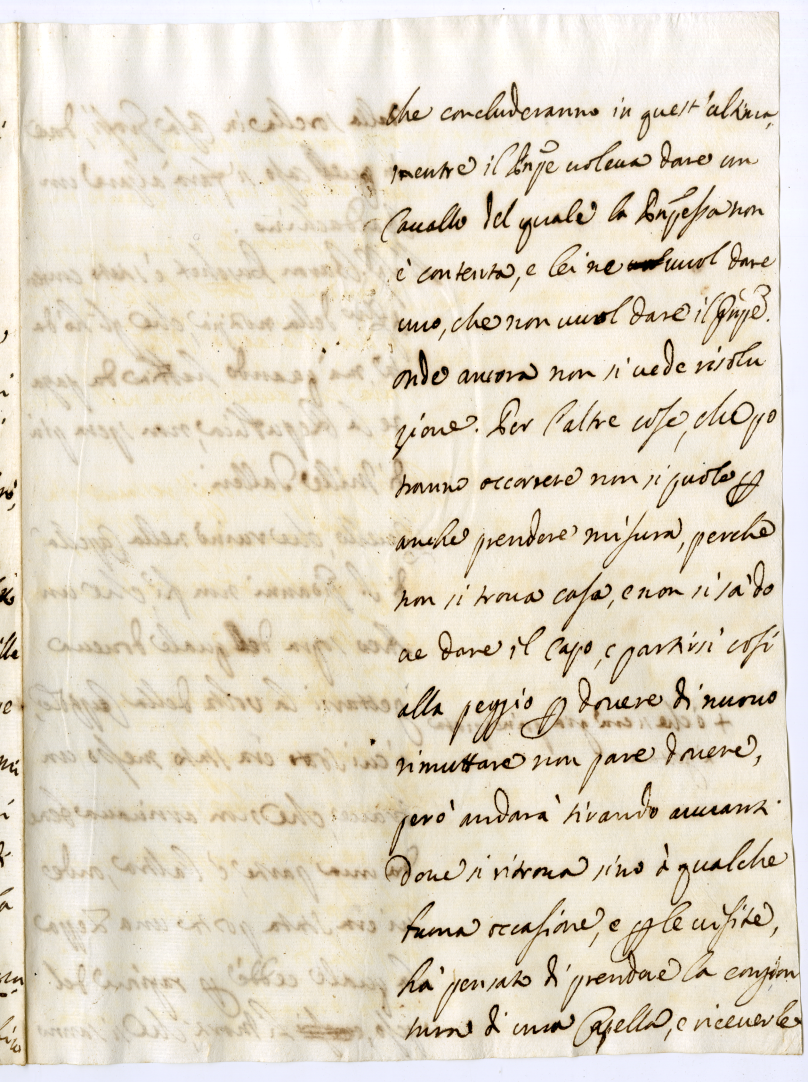 che concluderanno in quest'ultima,
mentre il Pnpe voleva dare un
Cavallo del quale la Pnpessa non
è contenta, e lei ne vuol dare
uno, che non vuol dare il Pnpe.
onde ancora non si vede risolu
zione. Per l'altre cose, che po
tranno occorrere non si puole p
anche prendere misura, perche
non si trova casa, e non si sà do
ve dare il capo, e partirsi così
alla peggio p dovere di nuovo
rimuttare non pare dovere,
però andarà tirando avvanti
dove si ritrova sino à qualche
buona occasione, e p le visite,
hà pensato di prendere la congion
tura di una Capella, e riceverle